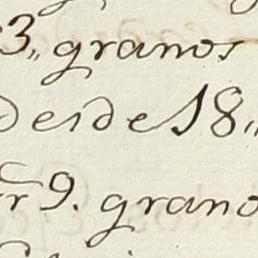 3,, granos
desde 18,,
9. grano